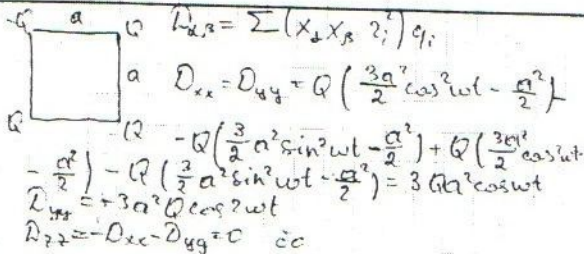 -Q a Q
a
Q -Q
D_{α,β} = Σ(x_α x_β r_i²) q_i
D_{xx} = D_{yy} = Q(3a²/2 cos²ωt - a²/2) -
-Q(3/2 a² sin²ωt - a²/2) + Q(3a²/2 cos²ωt -
- a²/2) - Q(3/2 a² sin²ωt - a²/2) = 3Qa² cosωt
D_{yy} = +3a²Q cos2ωt
D_{zz} = -D_{xx} - D_{yy} = 0